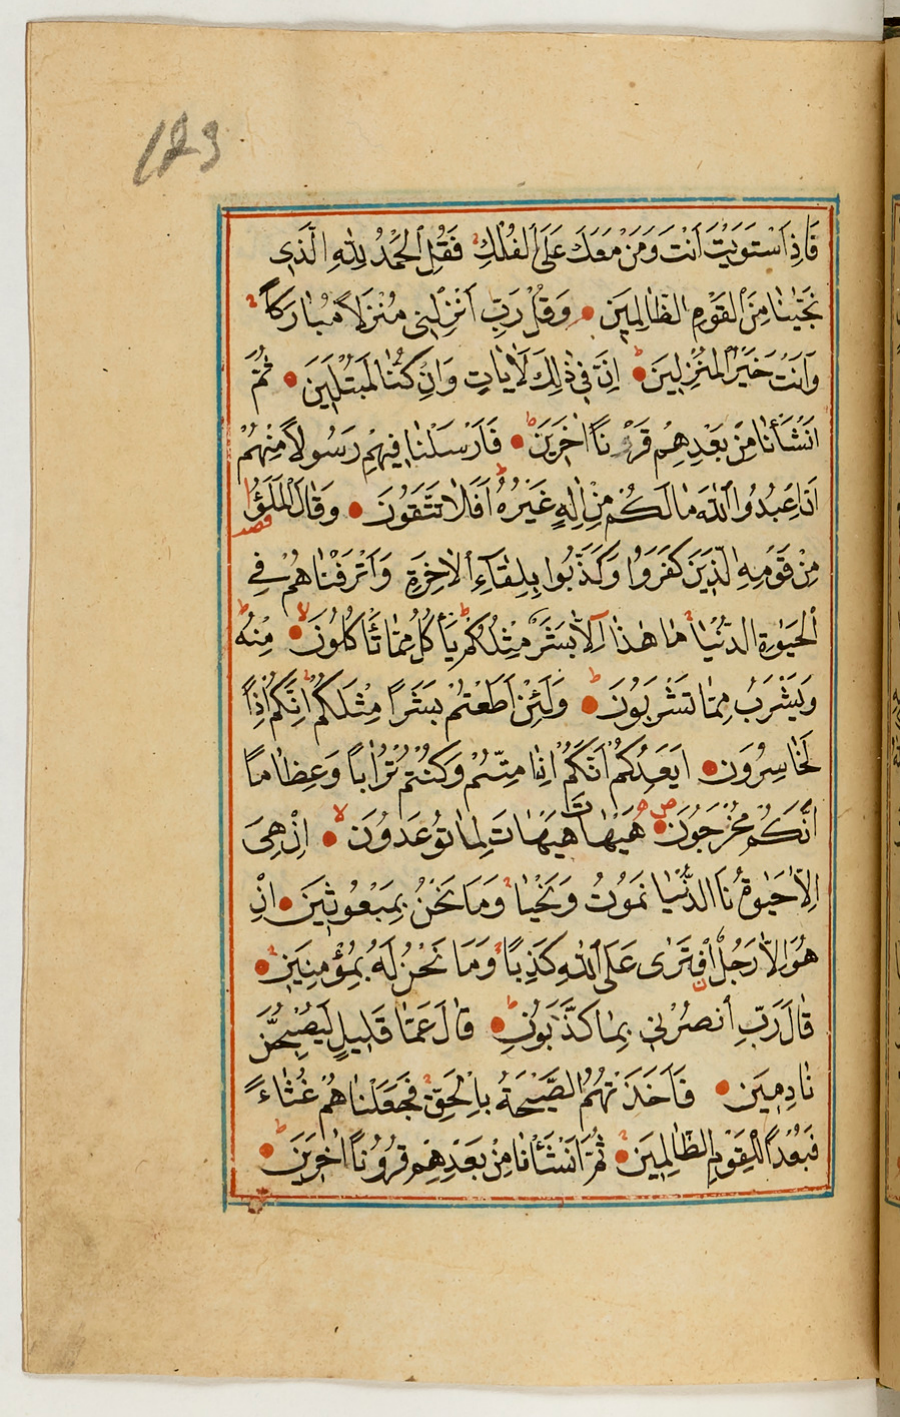 123
فَاِذَا اسْتَوَيْتَ اَنْتَ وَمَنْ مَعَكَ عَلَى الْفُلْكِ فَقُلِ الْحَمْدُ لِلّٰهِ الَّذٖى
نَجّٰينَا مِنَ الْقَوْمِ الظَّالِمٖينَ وَقُلْ رَبِّ اَنْزِلْنٖى مُنْزَلًا مُبَارَكًا
وَاَنْتَ خَيْرُ الْمُنْزِلٖينَ اِنَّ فٖى ذٰلِكَ لَاٰيَاتٍ وَاِنْ كُنَّا لَمُبْتَلٖينَ ثُمَّ
اَنْشَأْنَا مِنْ بَعْدِهِمْ قَرْنًا اٰخَرٖينَ فَاَرْسَلْنَا فٖيهِمْ رَسُولًا مِنْهُمْ
اَنِ اعْبُدُوا اللّٰهَ مَا لَكُمْ مِنْ اِلٰهٍ غَيْرُهُ اَفَلَا تَتَّقُونَ وَقَالَ الْمَلَؤُا
مِنْ قَوْمِهِ الَّذٖينَ كَفَرُوا وَكَذَّبُوا بِلِقَاءِ الْاٰخِرَةِ وَاَتْرَفْنَاهُمْ فِى
الْحَيٰوةِ الدُّنْيَا مَا هٰذَا اِلَّا بَشَرٌ مِثْلُكُمْ يَأْكُلُ مِمَّا تَأْكُلُونَ مِنْهُ
وَيَشْرَبُ مِمَّا تَشْرَبُونَ وَلَئِنْ اَطَعْتُمْ بَشَرًا مِثْلَكُمْ اِنَّكُمْ اِذًا
لَخَاسِرُونَ اَيَعِدُكُمْ اَنَّكُمْ اِذَا مِتُّمْ وَكُنْتُمْ تُرَابًا وَعِظَامًا
اَنَّكُمْ مُخْرَجُونَ هَيْهَاتَ هَيْهَاتَ لِمَا تُوعَدُونَ اِنْ هِىَ
اِلَّا حَيٰوتُنَا الدُّنْيَا نَمُوتُ وَنَحْيَا وَمَا نَحْنُ بِمَبْعُوثٖينَ اِنْ
هُوَ اِلَّا رَجُلٌ افْتَرٰى عَلَى اللّٰهِ كَذِبًا وَمَا نَحْنُ لَهُ بِمُؤْمِنٖينَ
قَالَ رَبِّ انْصُرْنٖى بِمَا كَذَّبُونِ قَالَ عَمَّا قَلٖيلٍ لَيُصْبِحُنَّ
نَادِمٖينَ فَاَخَذَتْهُمُ الصَّيْحَةُ بِالْحَقِّ فَجَعَلْنَاهُمْ غُثَاءً
فَبُعْدًا لِلْقَوْمِ الظَّالِمٖينَ ثُمَّ اَنْشَأْنَا مِنْ بَعْدِهِمْ قُرُونًا اٰخَرٖينَ